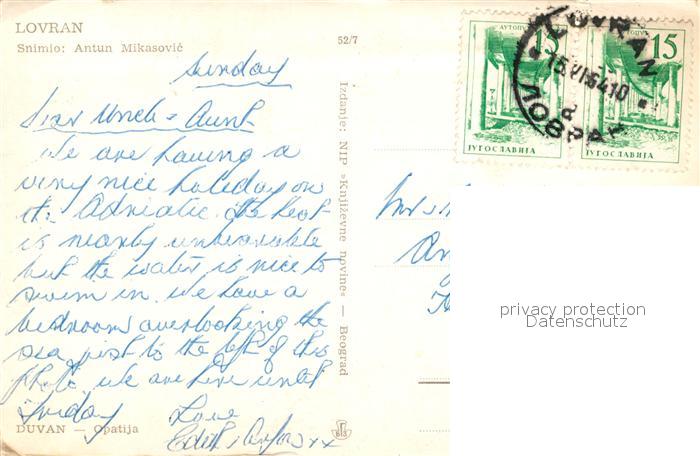 LOVRAN
Snimio: Antun Mikasović
52/7
Sunday
Dear Uncle + Aunt
We are having a
very nice holiday on
the Adriatic the heat
is nearly unbearable
but the water is nice to
swim in. we have a
bedroom overlooking the
sea just to the left of this
photo. we are here until
Friday Love
Edith
xx
DUVAN — Opatija
Izdanje: NIP »Književne novine« — Beograd
АУТОПУТ
15
ЈУГОСЛАВИЈА
15
ЈУГОСЛАВИЈА
LOVRAN
ЛОВРАН
privacy protection
Datenschutz